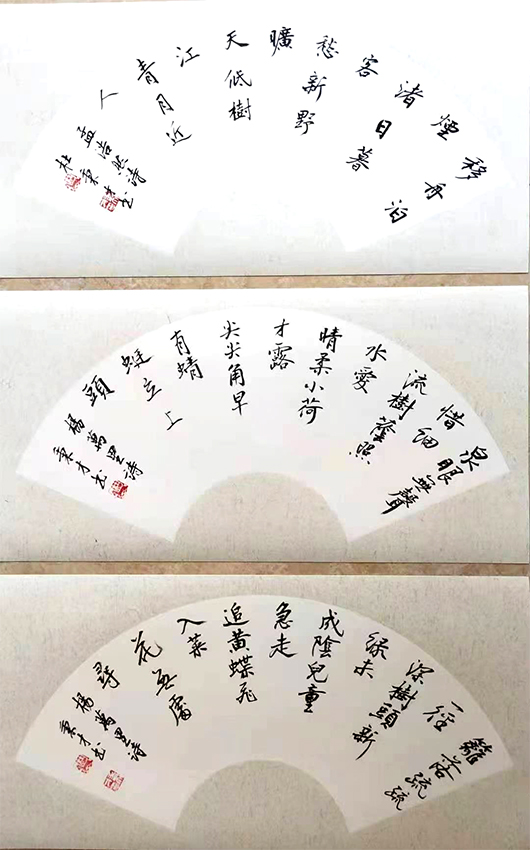 移舟泊
煙
渚日暮
客
愁新野
曠
天低樹
江
青月近
人
孟浩然詩
杜秉才书
泉眼無聲
惜細
流樹蔭照
水愛
晴柔小荷
才露
尖尖角早
有蜻
蜓立上
頭
楊萬里詩
秉才书
籬落疏疏
一徑
深樹頭新
綠未
成陰兒童
急走
追黃蝶飛
入菜
花無處
尋
楊萬里詩
秉才书